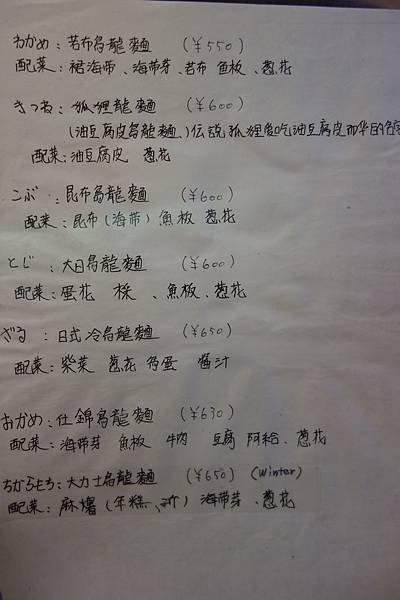 わかめ：若布烏龍麵 （¥550）
配菜：裙海帯、海帯芽、若布 魚板、蔥花
きつね：狐狸龍麵 （¥600）
（油豆腐皮烏龍麵）伝説狐狸愛吃油豆腐皮而
配菜：油豆腐皮 蔥花
こぶ：昆布烏龍麵 （¥600）
配菜：昆布（海帯）魚板 蔥花
とじ：大日烏龍麵 （¥600）
配菜：蛋花 、魚板、蔥花
ざる：日式冷烏龍麵 （¥650）
配菜：紫菜 蔥花 鳥蛋 醬汁
おかめ：什錦烏龍麵 （¥630）
配菜：海帯芽 魚板 牛肉 豆腐 阿給、蔥花
ちからもち：大力士烏龍麵 （¥650）（Winter）
配菜：麻糬（年糕、） 海帯芽、蔥花